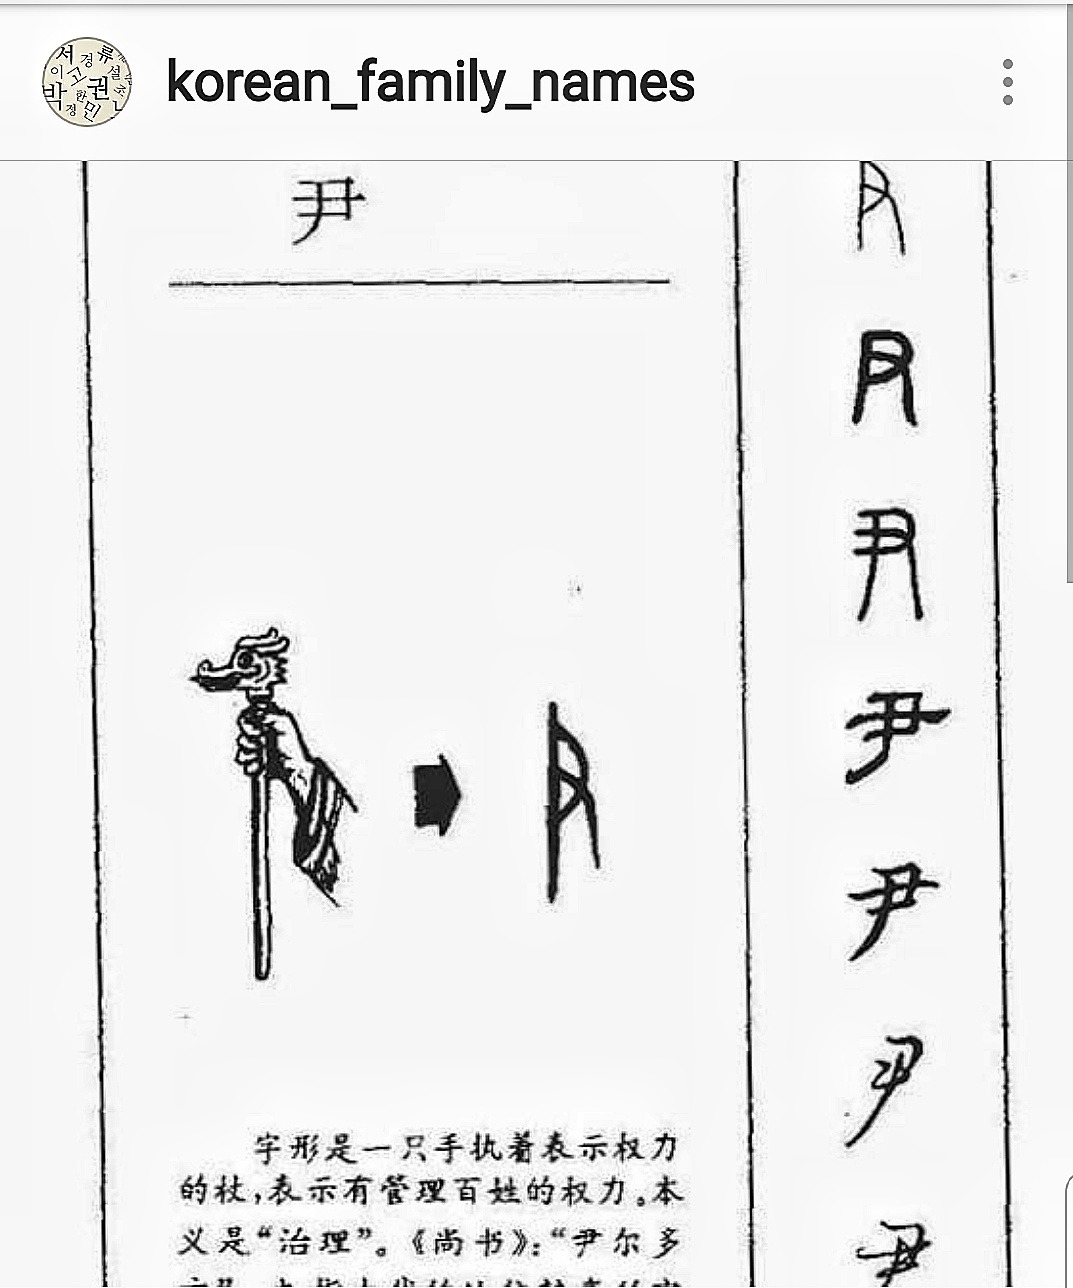 korean_family_names
尹
字形是一只手执着表示权力
的杖，表示有管理百姓的权力。本
义是“治理”。《尚书》：“尹尔多